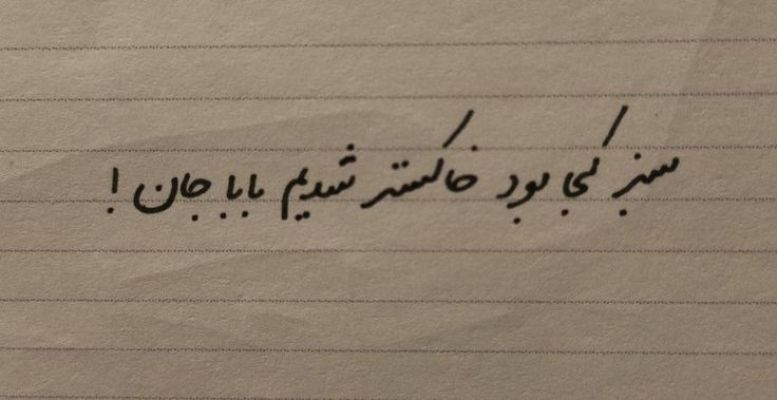 سبز کجا بود خاکستر شدیم بابا جان!